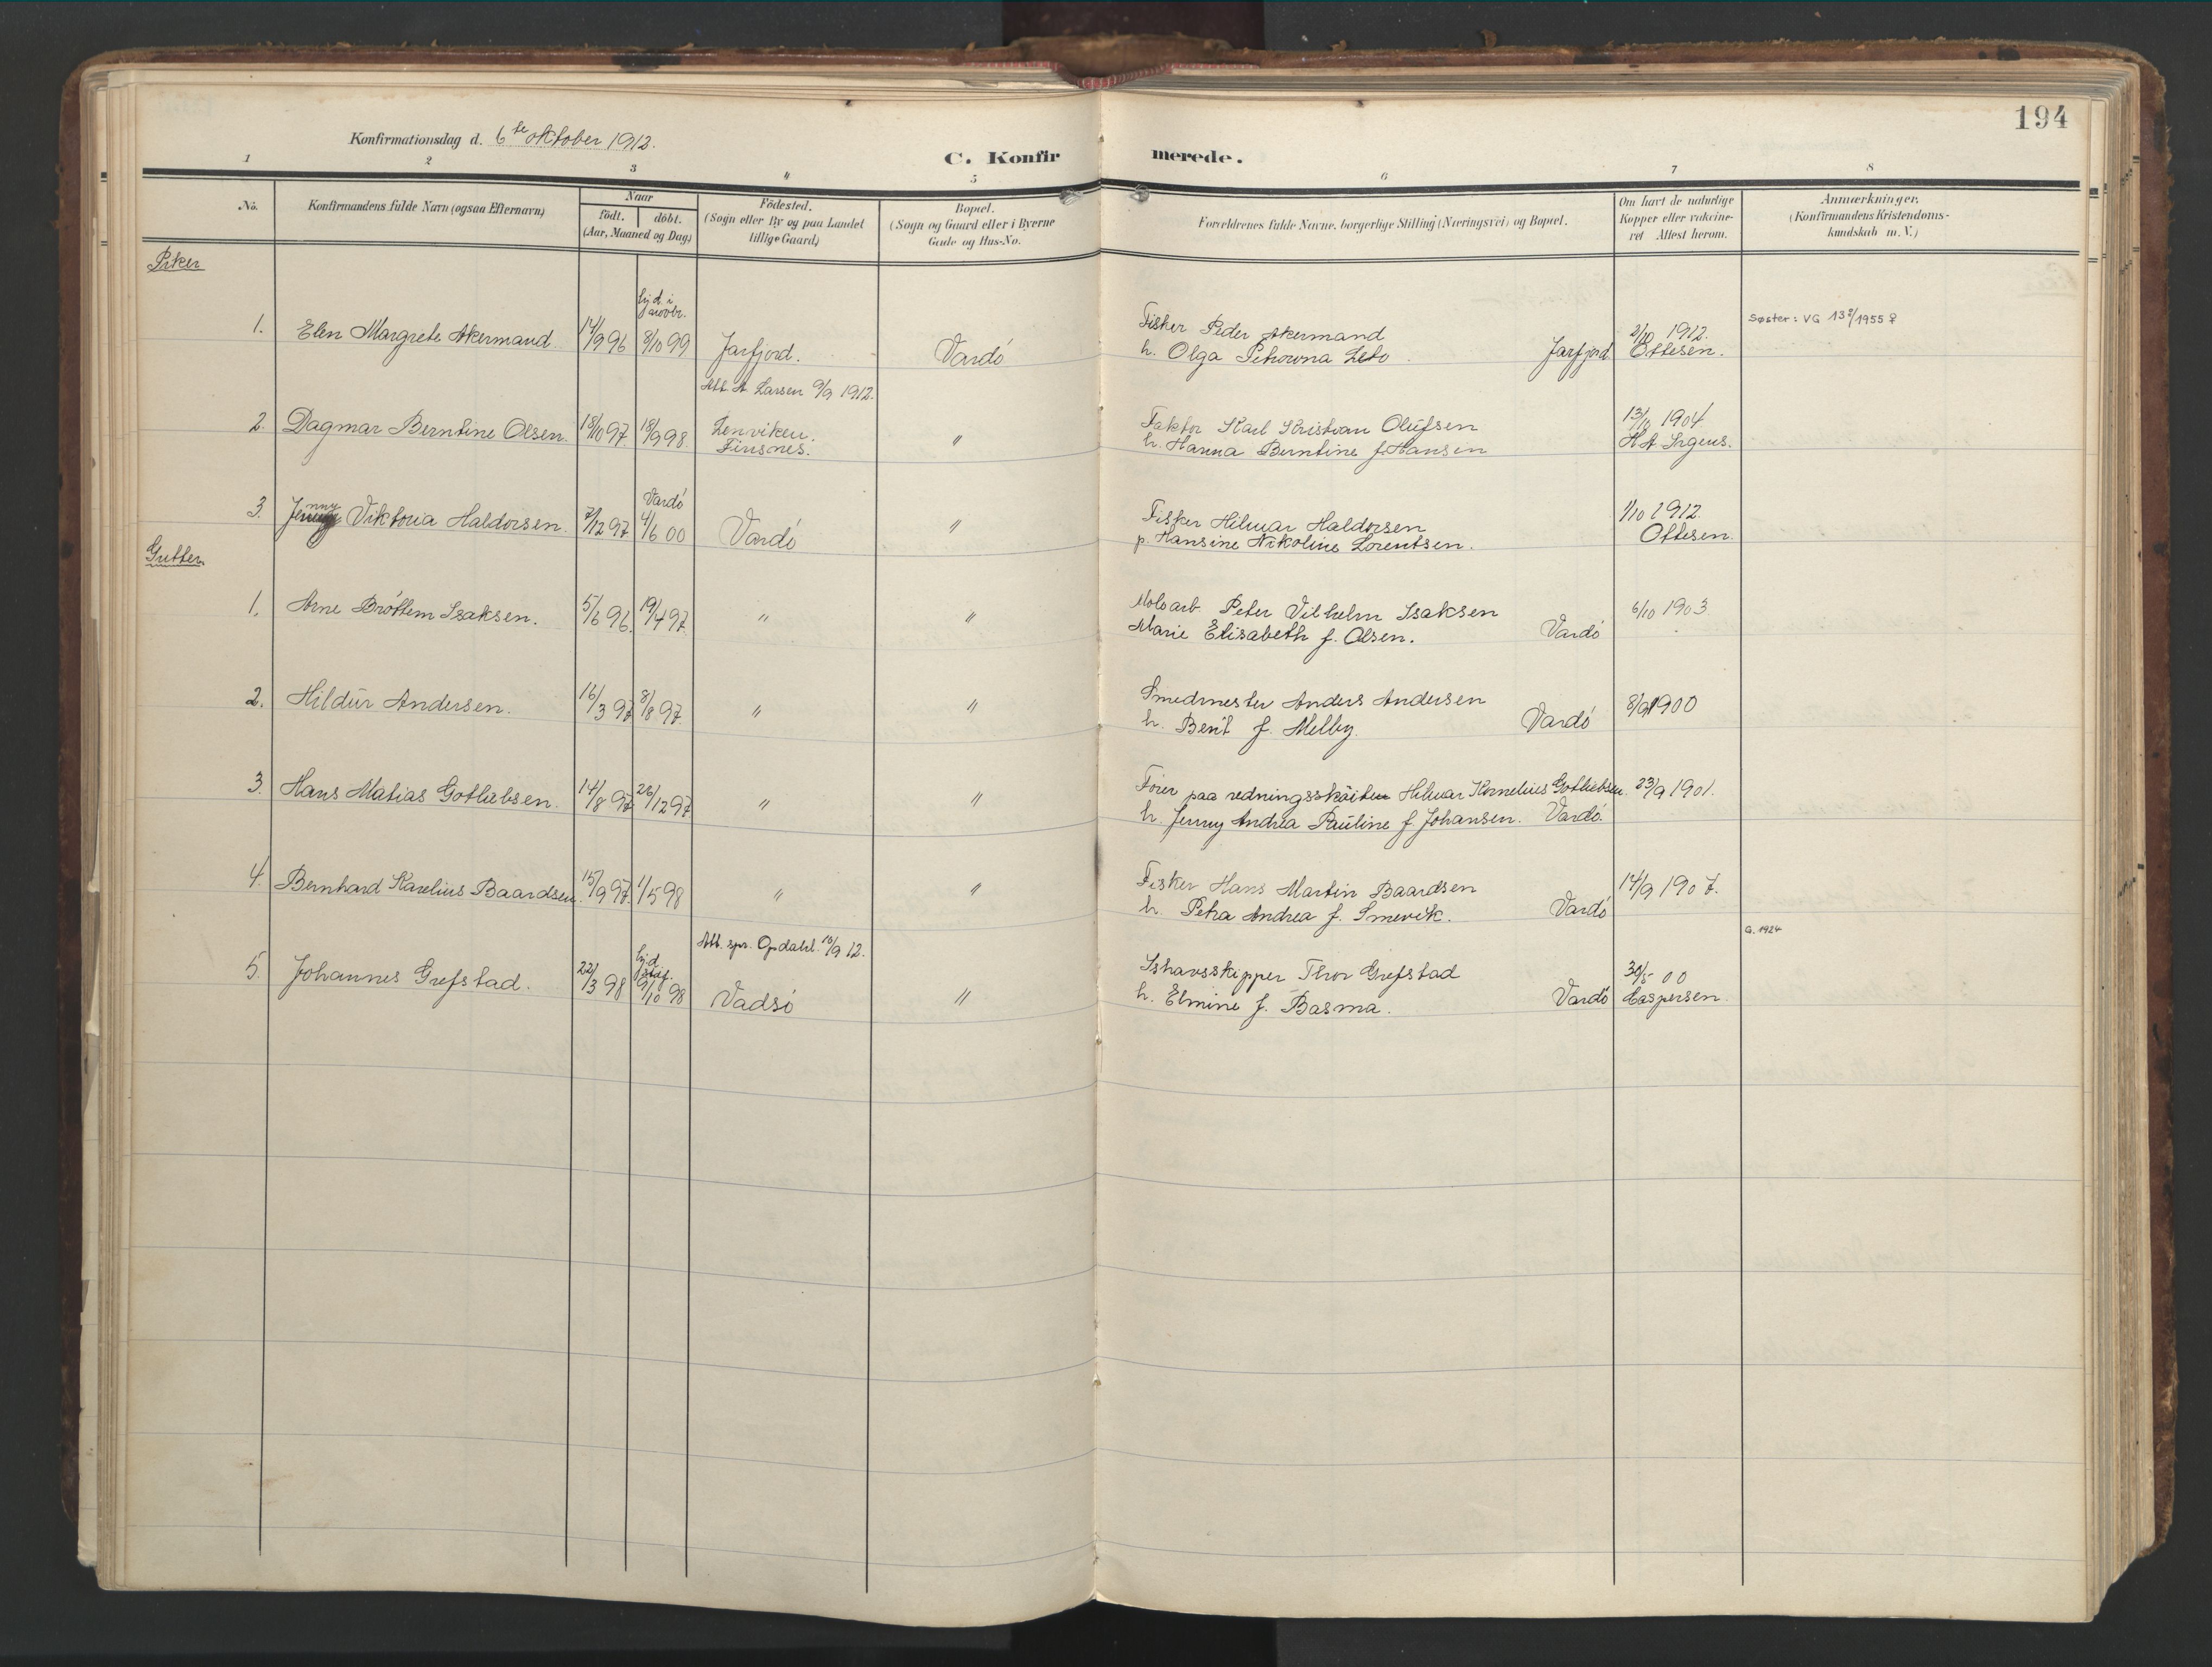 194
Konfirmationsdag d. 6te oktober 1912.
C. Konfirmerede.
1 2 3 4 5 6 7 8
No.
Konfirmandens fulde Navn (ogsaa Efternavn)
Naar
födt. döbt.
(Aar, Maaned og Dag)
Födested.
(Sogn eller By og paa Landet
tillige Gaard)
Bopæl.
(Sogn og Gaard eller i Byerne
Gade og Hus-No.
Forældrenes fulde Navne, borgerlige Stilling (Næringsvei) og Bopæl.
Om havt de naturlige
Kopper eller vakcine-
ret Attest herom.
Anmærkninger.
(Konfirmandens Kristendoms-
kundskab m. V.)
Piker
hj.d. i
1. Elen Margrete Akermand 14/9 96 8/10 99 Jarfjord. Vardö
Fisker Peder Akermand
h. Olga Petrowna Leto Jarfjord
2/10 1912.
Ottesen.
Søster: VG 138/1955 ♀
Att A Larsen 9/9 1912.
2. Dagmar Berntine Olsen. 18/10 97 18/9 98. Lenviken. "
Finsnes.
Faktor Karl Kristian Olufsen
h. Hanna Berntine f. Hansen
13/10 1904
Vardö
3. Jenny Viktoria Haldorsen. 7/12 97 4/6 00 Vardö "
Fisker Hilmar Haldorsen
p. Hansine Nikoline Lorentsen.
1/10 1912.
Ottesen.
Gutter.
1. Arne Bröttem Isaksen. 5/6 96. 19/4 97. " "
Moloarb. Peter Vilhelm Isaksen
Marie Elisabeth f. Olsen. Vardö
6/10 1903
2. Hildur Andersen. 16/3 97 8/8 97 " "
Smedmester Anders Andersen
h. Berit f. Melby. Vardö
8/9 1900
3. Hans Matias Gotliebsen. 14/8 97 26/12 97 " "
Förer paa redningsskøiten Hilmar Kornelius Gotliebsen.
h. Jenny Andrea Pauline f Johansen. Vardö.
23/9 1901.
4. Bernhard Karelius Baardsen. 15/9 97. 1/5 98 " "
Fisker Hans Martin Baardsen
h. Petra Andrea f. Smevik. Vardö
14/9 1907.
G. 1924
Att. spr. Opdahl 10/9 12.
hj.d.
5. Johannes Grefstad. 22/3 98 9/10 98 Vadsö "
Ishavsskipper Thor Grefstad
h. Elmine f. Basma. Vardö
30/5 00
Caspersen.